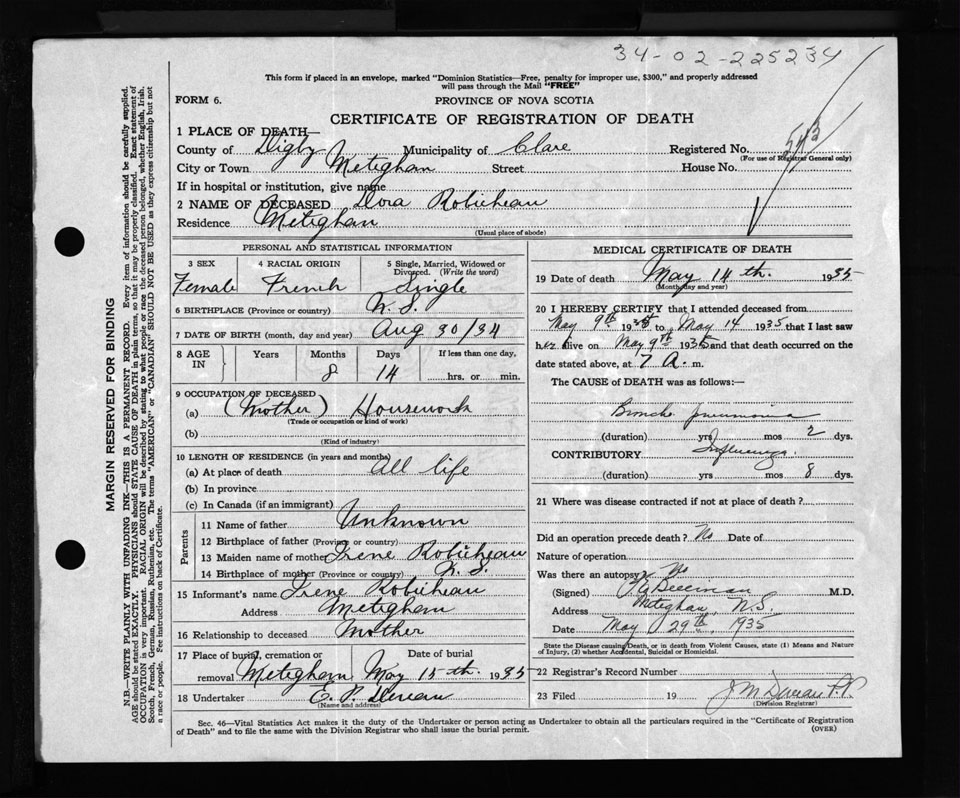 34-02-225234
This form if placed in an envelope, marked "Dominion Statistics—Free, penalty for improper use, $300," and properly addressed
will pass through the Mail "FREE"
FORM 6.
PROVINCE OF NOVA SCOTIA
CERTIFICATE OF REGISTRATION OF DEATH
1 PLACE OF DEATH—
County of Digby Municipality of Clare Registered No. 543
(For use of Registrar General only)
City or Town Meteghan Street House No.
If in hospital or institution, give name
2 NAME OF DECEASED Dora Robicheau
Residence Meteghan
(Usual place of abode)
PERSONAL AND STATISTICAL INFORMATION
3 SEX 4 RACIAL ORIGIN 5 Single, Married, Widowed or
Divorced. (Write the word)
Female French Single
6 BIRTHPLACE (Province or country) N. S.
7 DATE OF BIRTH (month, day and year) Aug 30/34
8 AGE IN Years Months Days If less than one day,
8 14 hrs. or min.
9 OCCUPATION OF DECEASED
(a) (Mother) Housework
(Trade or occupation or kind of work)
(b)
(Kind of industry)
10 LENGTH OF RESIDENCE (in years and months)
(a) At place of death All life
(b) In province
(c) In Canada (if an immigrant)
Parents
11 Name of father Unknown
12 Birthplace of father (Province or country)
13 Maiden name of mother Irene Robicheau
14 Birthplace of mother (Province or country) N. S.
15 Informant's name Irene Robicheau
Address Meteghan
16 Relationship to deceased Mother
17 Place of burial, cremation or Date of burial
removal Meteghan May 15th. 1935
18 Undertaker E. P. Deveau
(Name and address)
MEDICAL CERTIFICATE OF DEATH
19 Date of death May 14th. 1935
(Month, day and year)
20 I HEREBY CERTIFY that I attended deceased from
May 9th 1935 to May 14 1935 that I last saw
her alive on May 9th 1935 and that death occurred on the
date stated above, at 7 A. m.
The CAUSE of DEATH was as follows:—
Broncho pneumonia
(duration) yrs mos 2 dys.
CONTRIBUTORY Influenza.
(duration) yrs mos 8 dys.
21 Where was disease contracted if not at place of death?
Did an operation precede death? No Date of
Nature of operation
Was there an autopsy? No
(Signed) M.D.
Address Meteghan, N.S.
Date May 29th, 1935
State the Disease causing Death, or in death from Violent Causes, state (1) Means and Nature
of Injury, (2) whether Accidental, Suicidal or Homicidal.
22 Registrar's Record Number
23 Filed 19 J M Deveau P.P.
(Division Registrar)
Sec. 46—Vital Statistics Act makes it the duty of the Undertaker or person acting as Undertaker to obtain all the particulars required in the "Certificate of Registration
of Death" and to file the same with the Division Registrar who shall issue the burial permit.
(OVER)
MARGIN RESERVED FOR BINDING
N.B.—WRITE PLAINLY WITH UNFADING INK—THIS IS A PERMANENT RECORD. Every item of information should be carefully supplied.
AGE should be stated EXACTLY. PHYSICIANS should STATE CAUSE OF DEATH in plain terms, so that it may be properly classified. Exact statement of
OCCUPATION is very important. RACIAL ORIGIN will be described by stating to what people or race the deceased person belonged, whether English, Irish,
Scotch, French, German, Russian, Ruthenian, etc. The terms "AMERICAN" or "CANADIAN" SHOULD NOT BE USED as they express citizenship but not
a race or people. See instructions on back of Certificate.